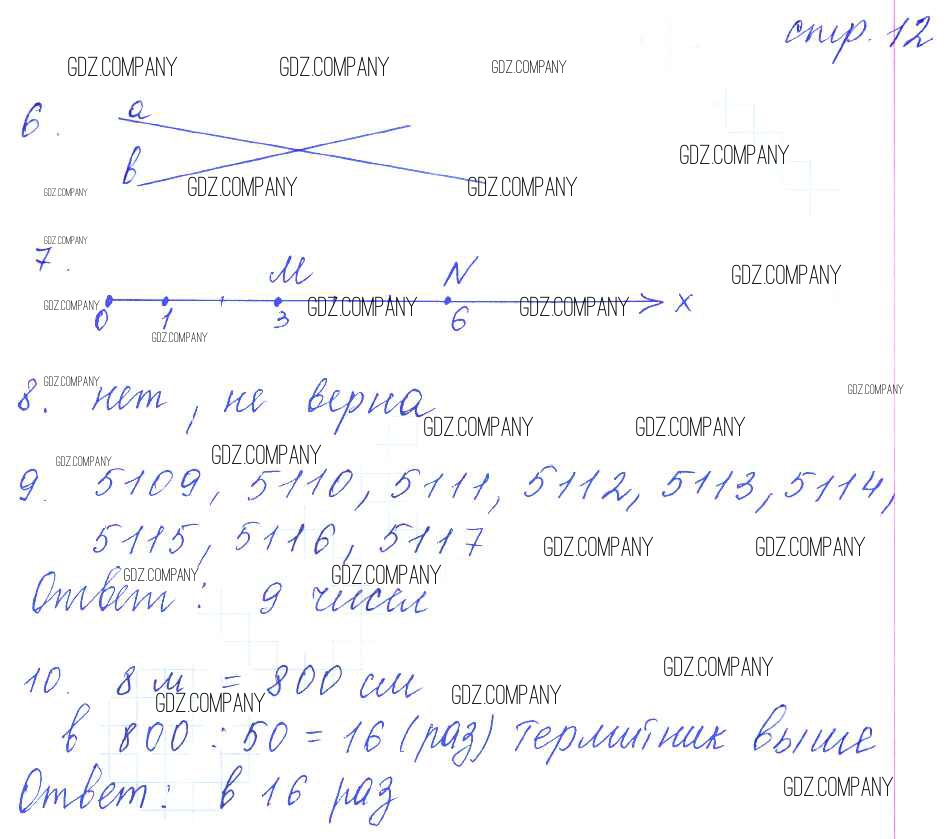 стр. 12
GDZ.COMPANY GDZ.COMPANY GDZ.COMPANY
6. a
GDZ.COMPANY
в
GDZ.COMPANY GDZ.COMPANY GDZ.COMPANY
GDZ.COMPANY
7. M N
GDZ.COMPANY
GDZ.COMPANY GDZ.COMPANY GDZ.COMPANY x
0 1 3 6
GDZ.COMPANY
GDZ.COMPANY GDZ.COMPANY
8. нет, не верна
GDZ.COMPANY GDZ.COMPANY
GDZ.COMPANY GDZ.COMPANY
9. 5109, 5110, 5111, 5112, 5113, 5114,
5115, 5116, 5117
GDZ.COMPANY GDZ.COMPANY
GDZ.COMPANY GDZ.COMPANY
Ответ: 9 чисел
GDZ.COMPANY
10. 8 м = 800 см
GDZ.COMPANY GDZ.COMPANY
в 800 : 50 = 16 (раз) термитник выше
GDZ.COMPANY
Ответ: в 16 раз